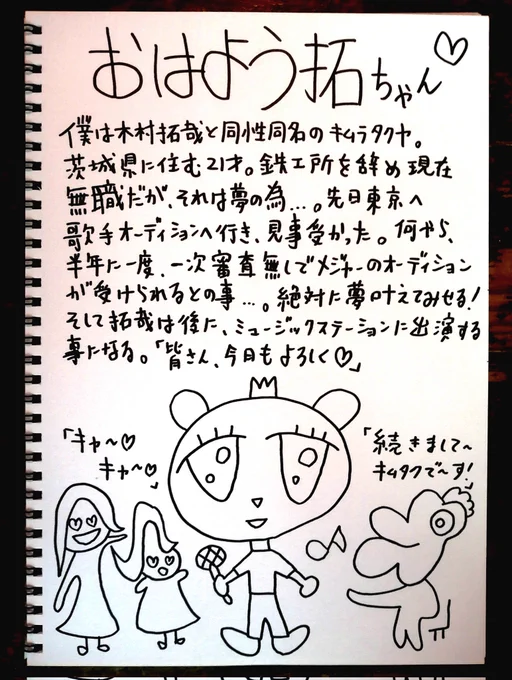 おはよう拓ちゃん♡
僕は木村拓哉と同性同名のキムラタクヤ。
茨城県に住む21才。鉄工所を辞め現在
無職だが、それは夢の為…。先日東京へ
歌手オーディションへ行き、見事受かった。何やら、
半年に一度、一次審査無しでメジャーのオーディション
が受けられるとの事…。絶対に夢叶えてみせる!
そして拓哉は後に、ミュージックステーションに出演する
事になる。「皆さん、今日もよろしく♡」
「キャ〜♡
キャ〜♡」
「続きまして〜
キムタクで〜す!」